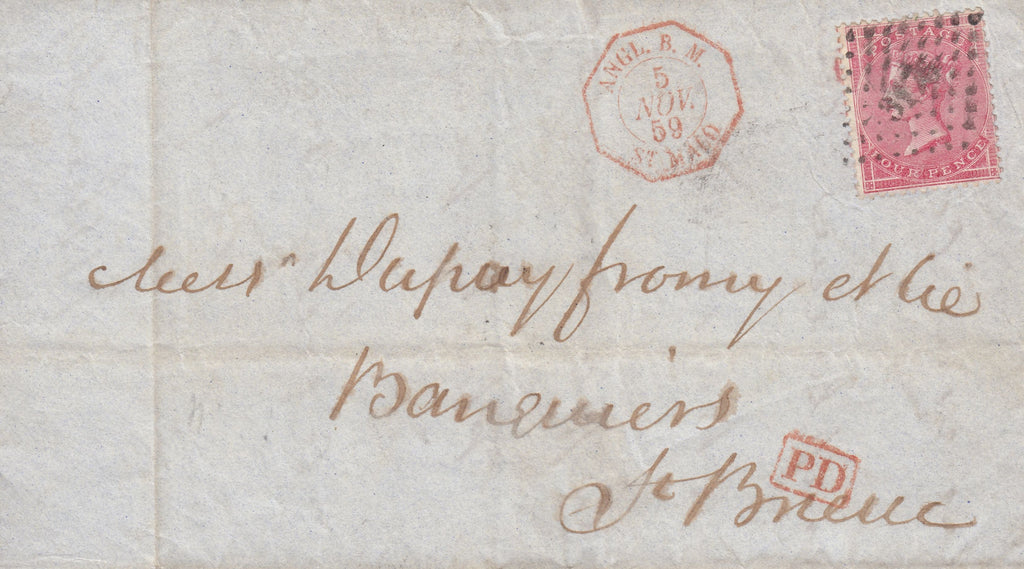 ANGL. B. M.
5
NOV.
59
ST MALO
POSTAGE
FOUR PENCE
Mess rs Dupuy fromy et Cie
Banquiers
St Brieuc
PD